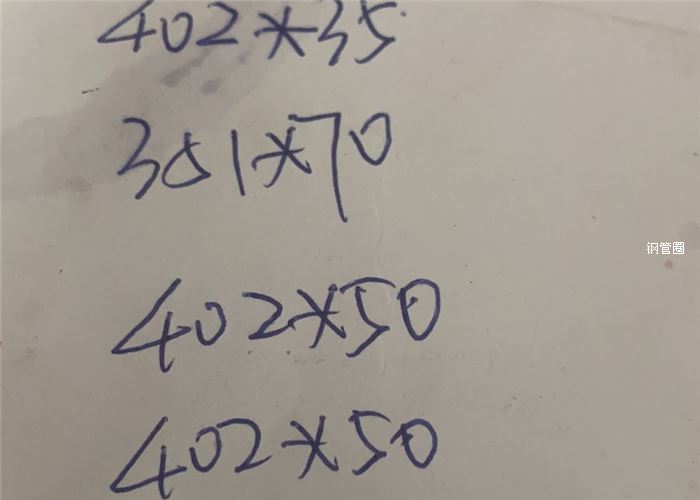 402*35
351*70
钢管圈
402*50
402*50